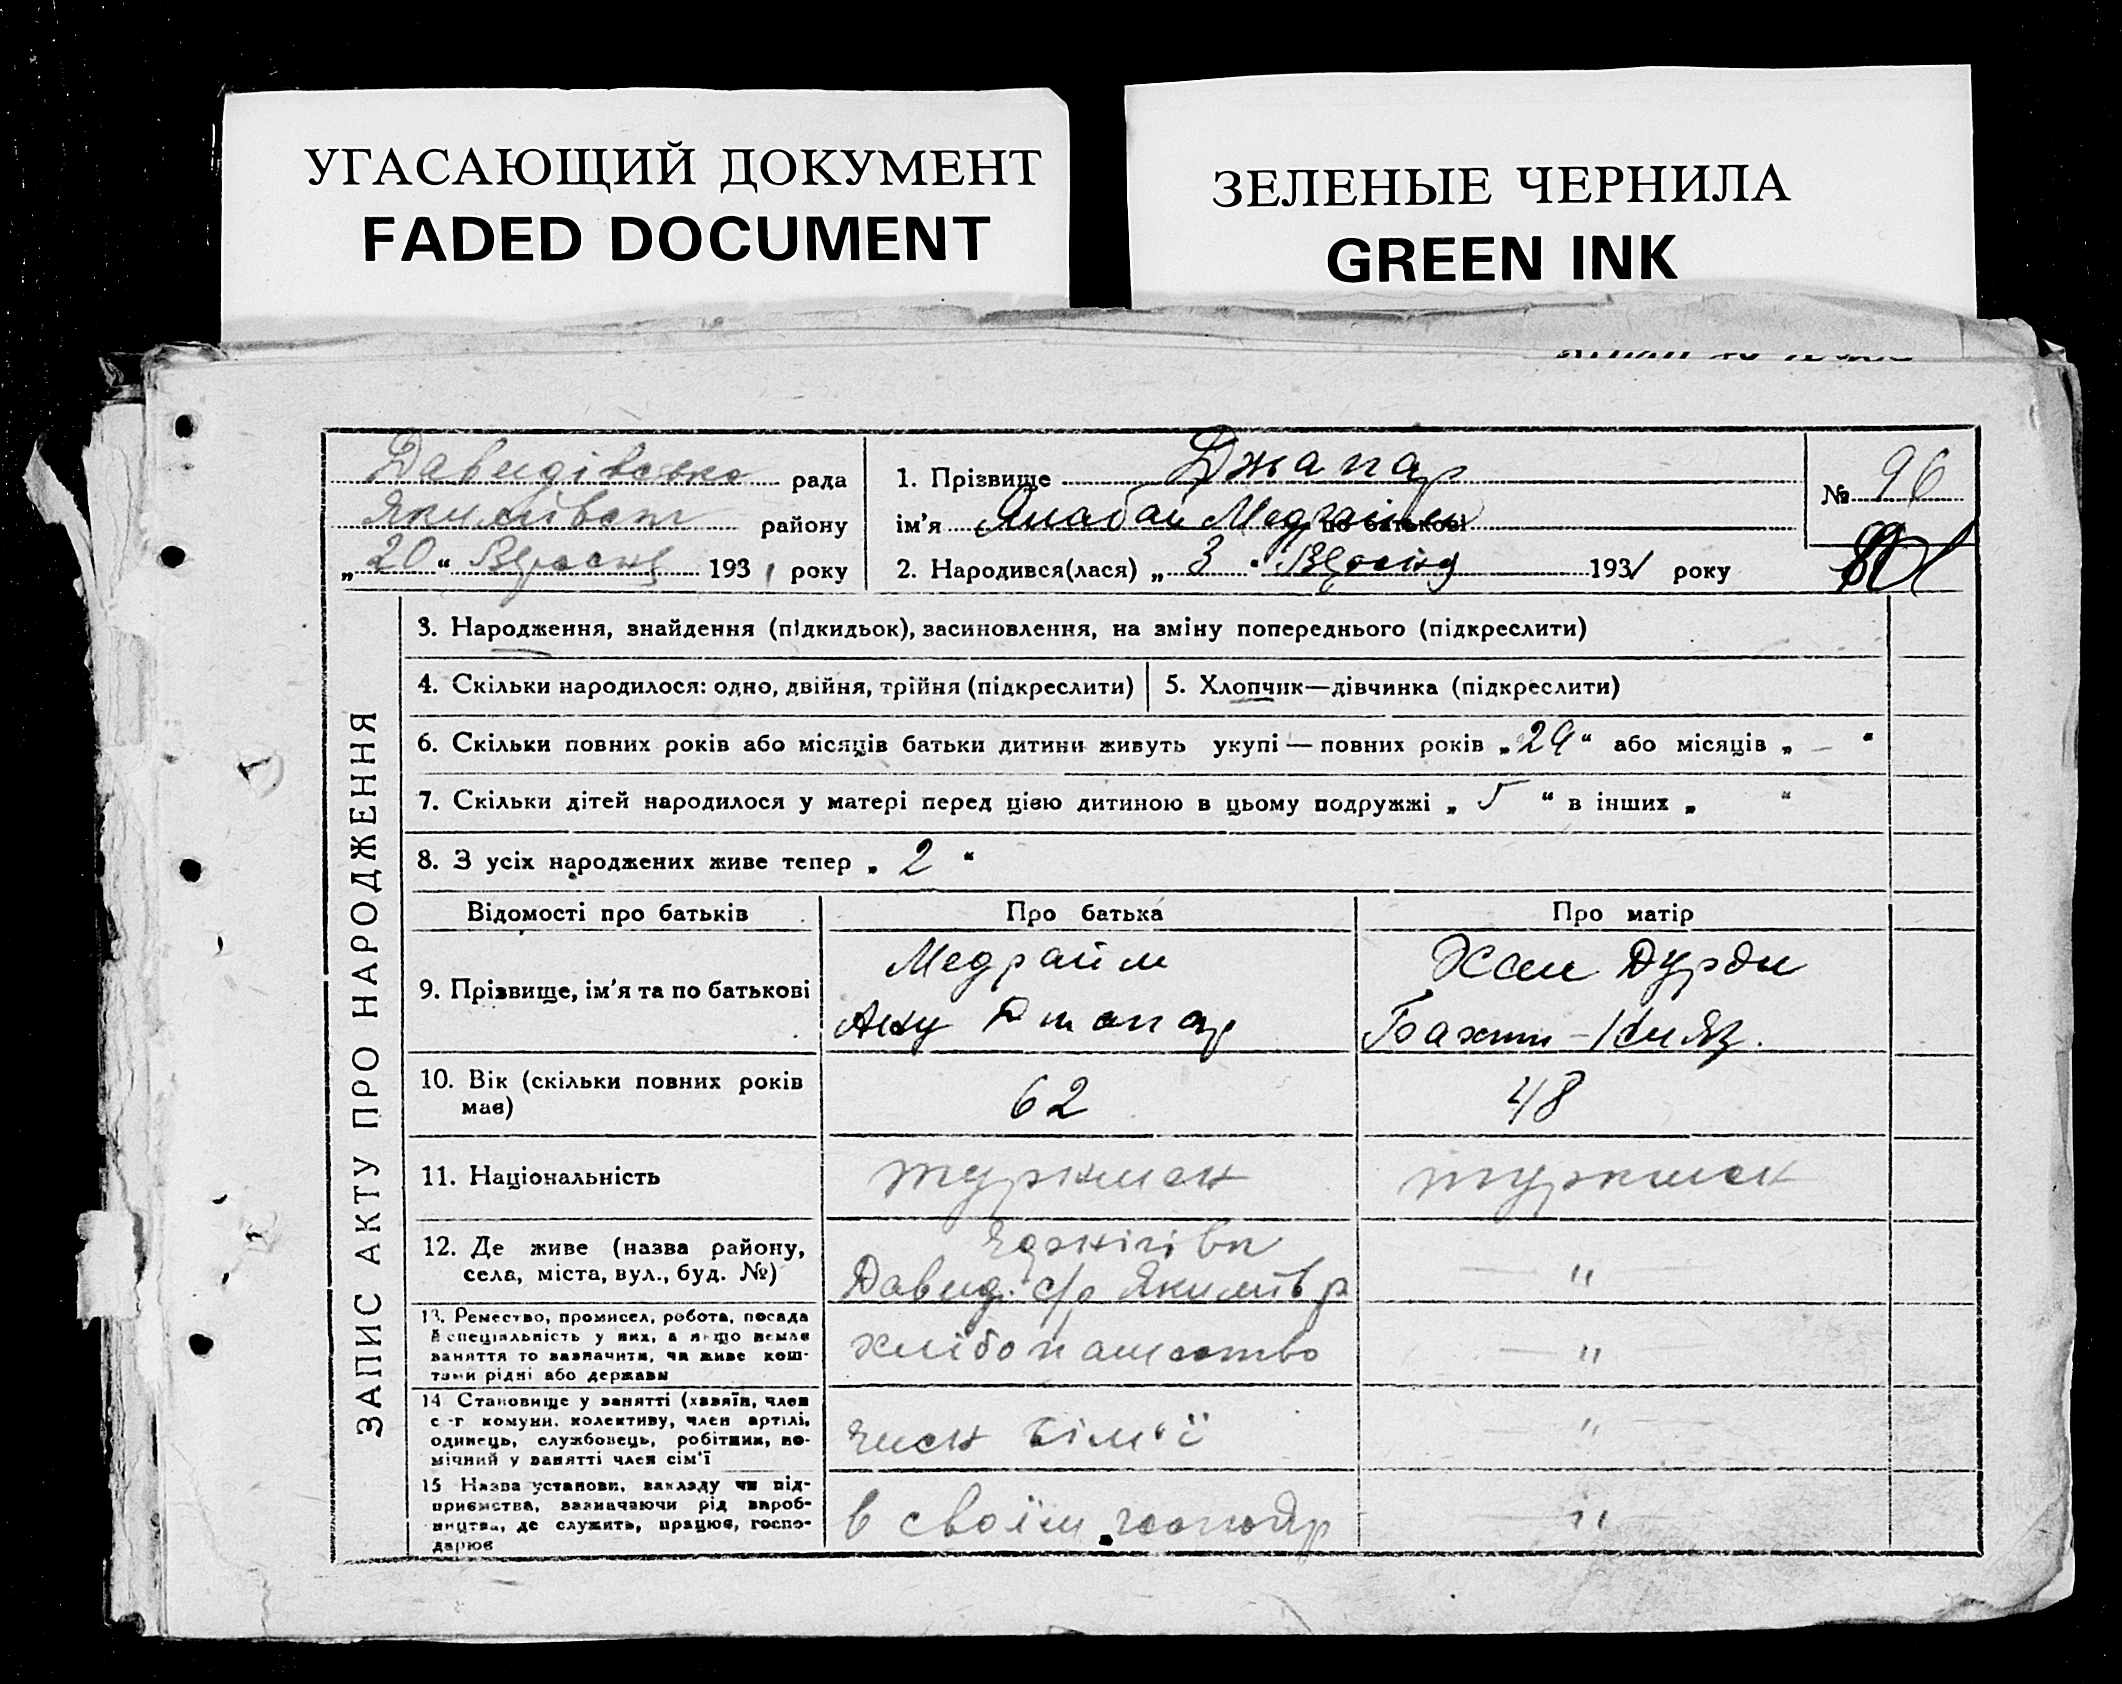 УГАСАЮЩИЙ ДОКУМЕНТ
FADED DOCUMENT
ЗЕЛЕНЫЕ ЧЕРНИЛА
GREEN INK
Давидівська рада
Якимівськ району
„20“ Вересня 1931 року
1. Прізвище Джапар
ім’я по батькові
2. Народився(лася) „3“ Вересня 1931 року
№ 96
ЗАПИС АКТУ ПРО НАРОДЖЕННЯ
3. Народження, знайдення (підкидьок), засиновлення, на зміну попереднього (підкреслити)
4. Скільки народилося: одно, двійня, трійня (підкреслити)
5. Хлопчик—дівчинка (підкреслити)
6. Скільки повних років або місяців батьки дитини живуть укупі — повних років „29“ або місяців „ — “
7. Скільки дітей народилося у матері перед цією дитиною в цьому подружжі „ 5 “ в інших „ “
8. З усіх народжених живе тепер „ 2 “
Відомості про батьків
Про батька
Про матір
9. Прізвище, ім’я та по батькові
Медраим
Джапар
Хан Дурди
Бахти-
10. Вік (скільки повних років
має)
62
48
11. Національність
туркмен
туркмен
12. Де живе (назва району,
села, міста, вул., буд. №)
Давид. с/р Якимів р
— " —
13. Ремество, промисел, робота, посада
й спеціяльність у них, а якщо немає
заняття то зазначити, чи живе кош-
тами рідні або держави
хлібопашество
— " —
14 Становище у занятті (хазяїн, член
с-г комуни, колективу, член артілі,
одинець, службовець, робітник, по-
мічний у занятті член сім’ї
член сім’ї
"
15 Назва установи, закладу чи під-
приємства, зазначаючи рід вироб-
ництва, де служить, працює, госпо-
дарює
в своїм господар
"